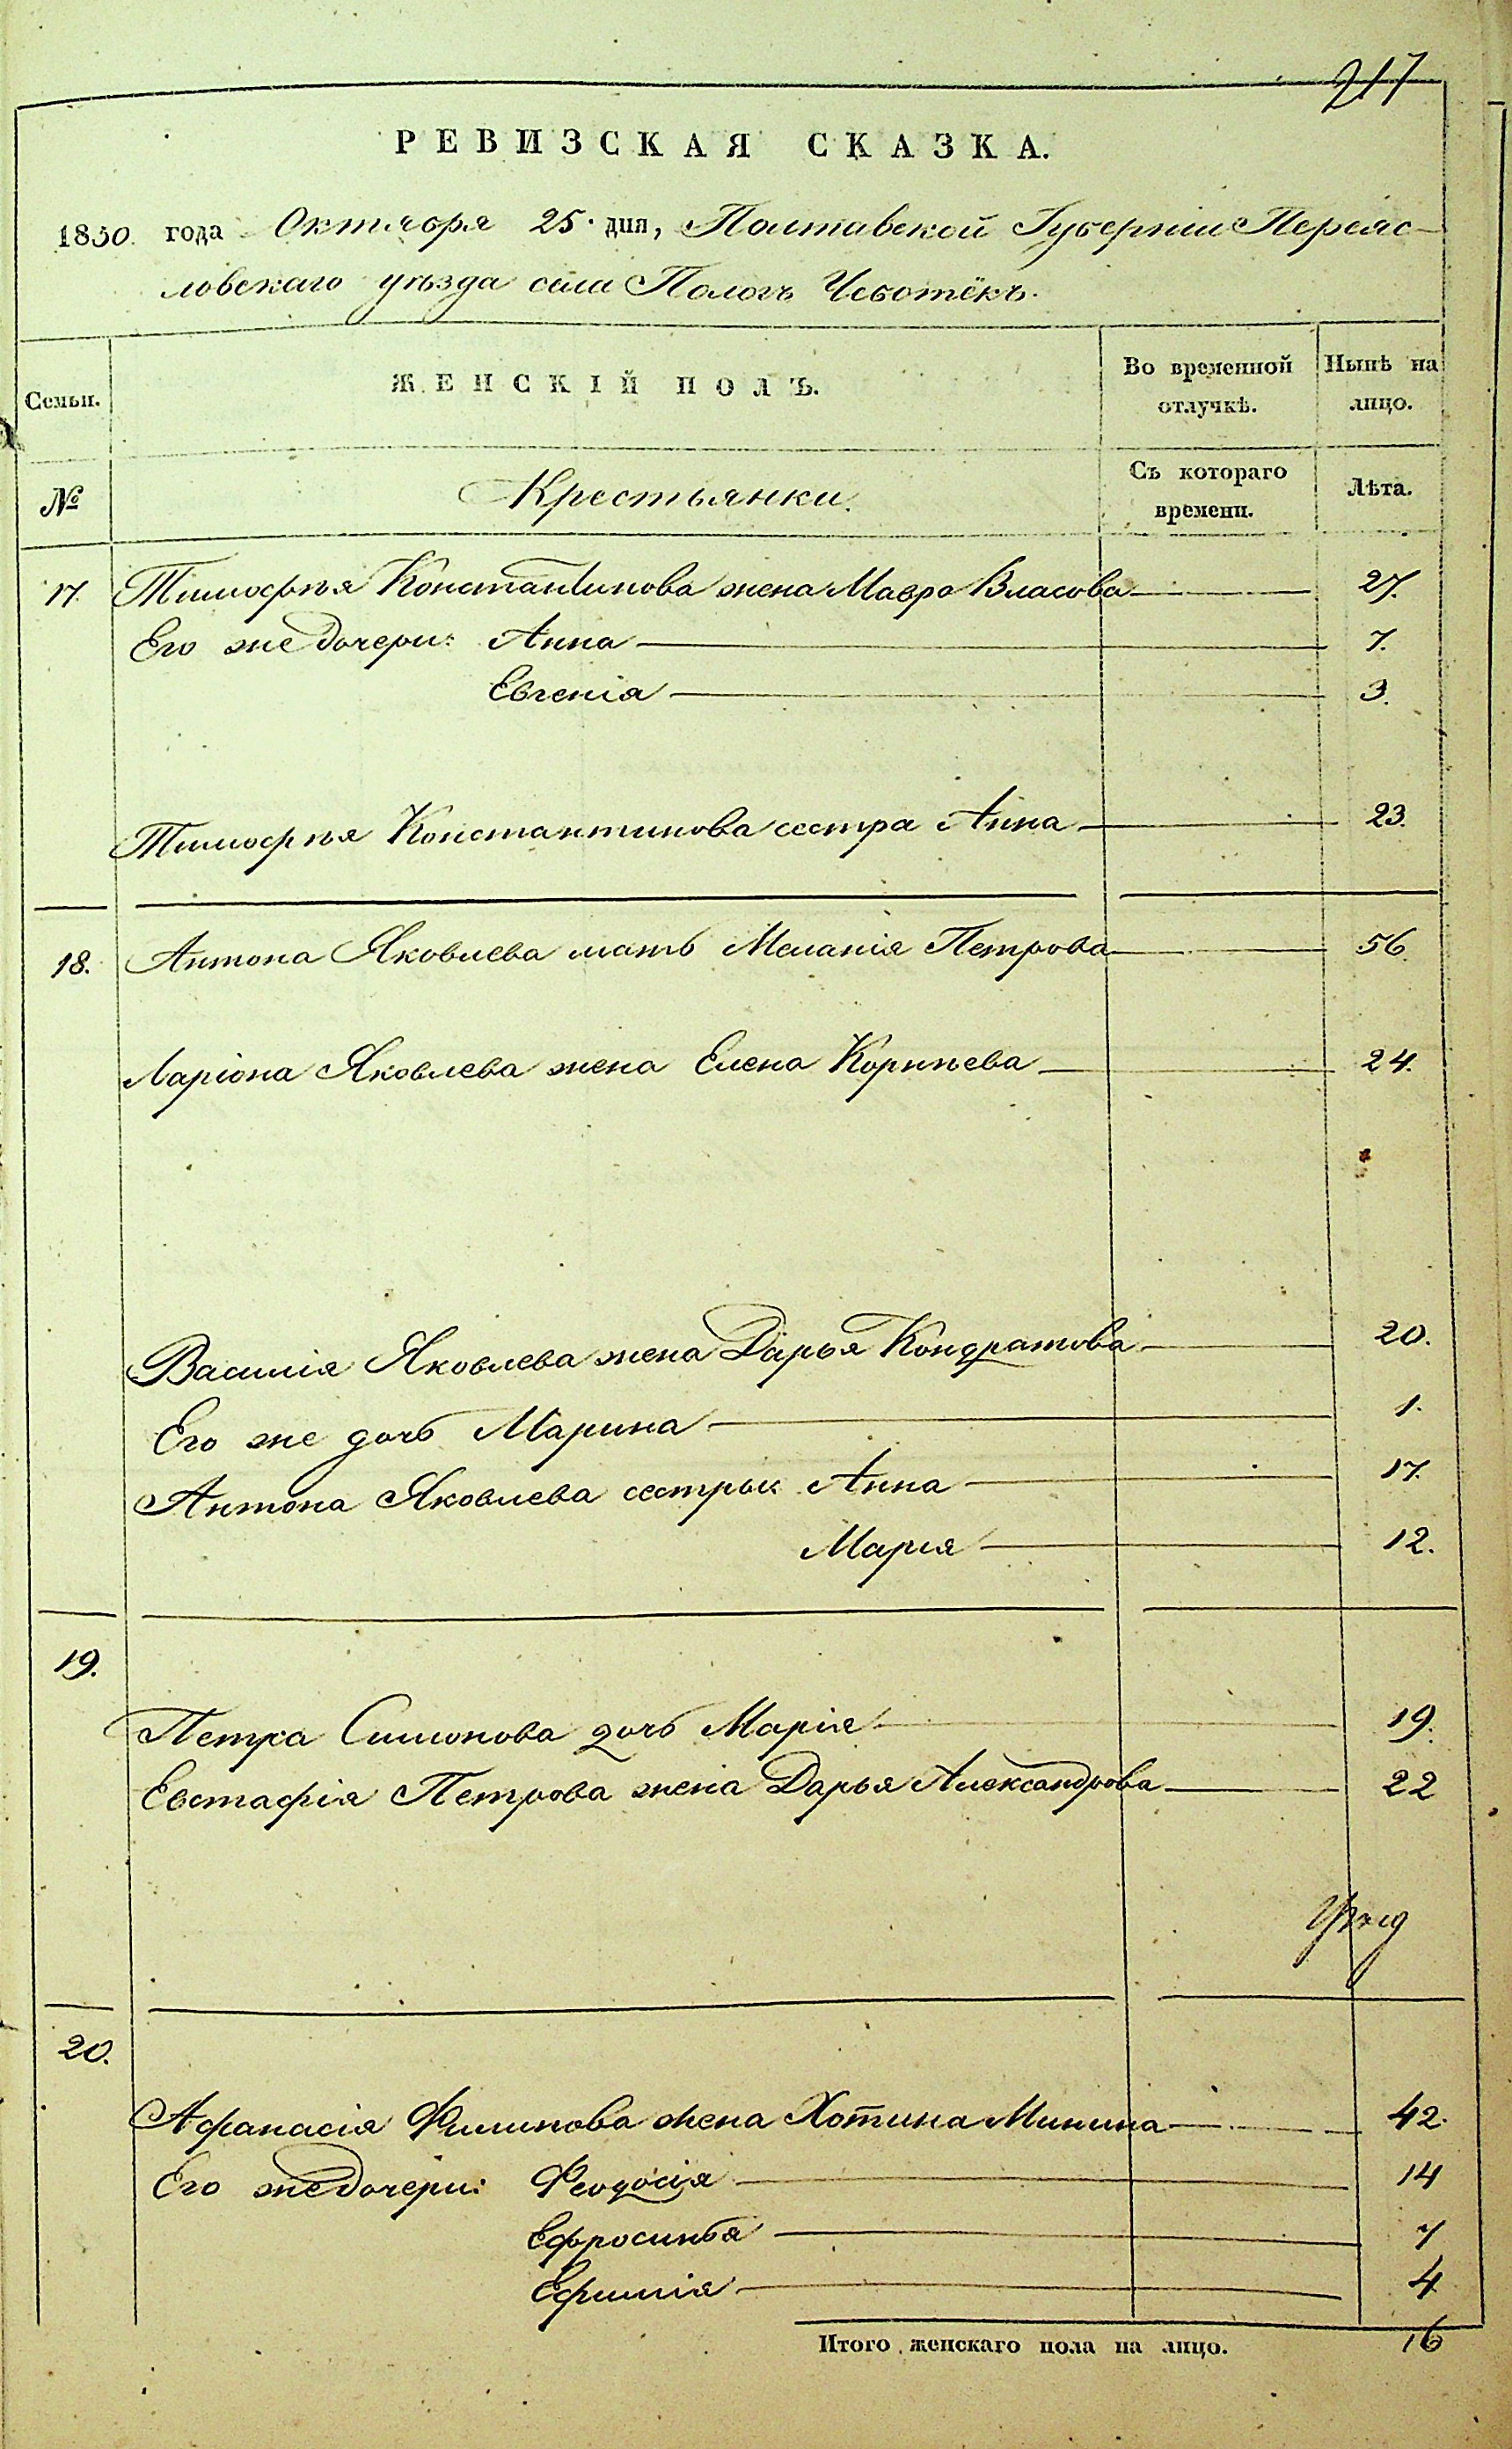 217
РЕВИЗСКАЯ СКАЗКА.
1850 года Октября 25 дня, Полтавской Губерніи Переяс-
ловскаго уѣзда села Пологъ Чеботёкъ.
Семьи.
ЖЕНСКІЙ ПОЛЪ.
Во временной отлучкѣ.
Нынѣ на лицо.
№
Крестьянки.
Съ котораго времени.
Лѣта.
17. Тимофѣя Константинова жена Мавра Власова 27.
Его же дочери: Анна 7.
Евгенія 3.
Тимофѣя Константинова сестра Анна 23.
18. Антона Яковлева мать Меланія Петрова 56.
Ларіона Яковлева жена Елена Корнѣева 24.
Василія Яковлева жена Дарья Кондратова 20.
Его же дочь Марина 1.
Антона Яковлева сестры Анна 17.
Марія 12.
19.
Петра Симонова дочь Марія 19.
Евстафія Петрова жена Дарья Александрова 22
20.
Афанасія Филипова жена Хотина Минина 42.
Его же дочери: Феодосія 14
Ефросинья 7
Ефимія 4
Итого женскаго пола на лицо. 16